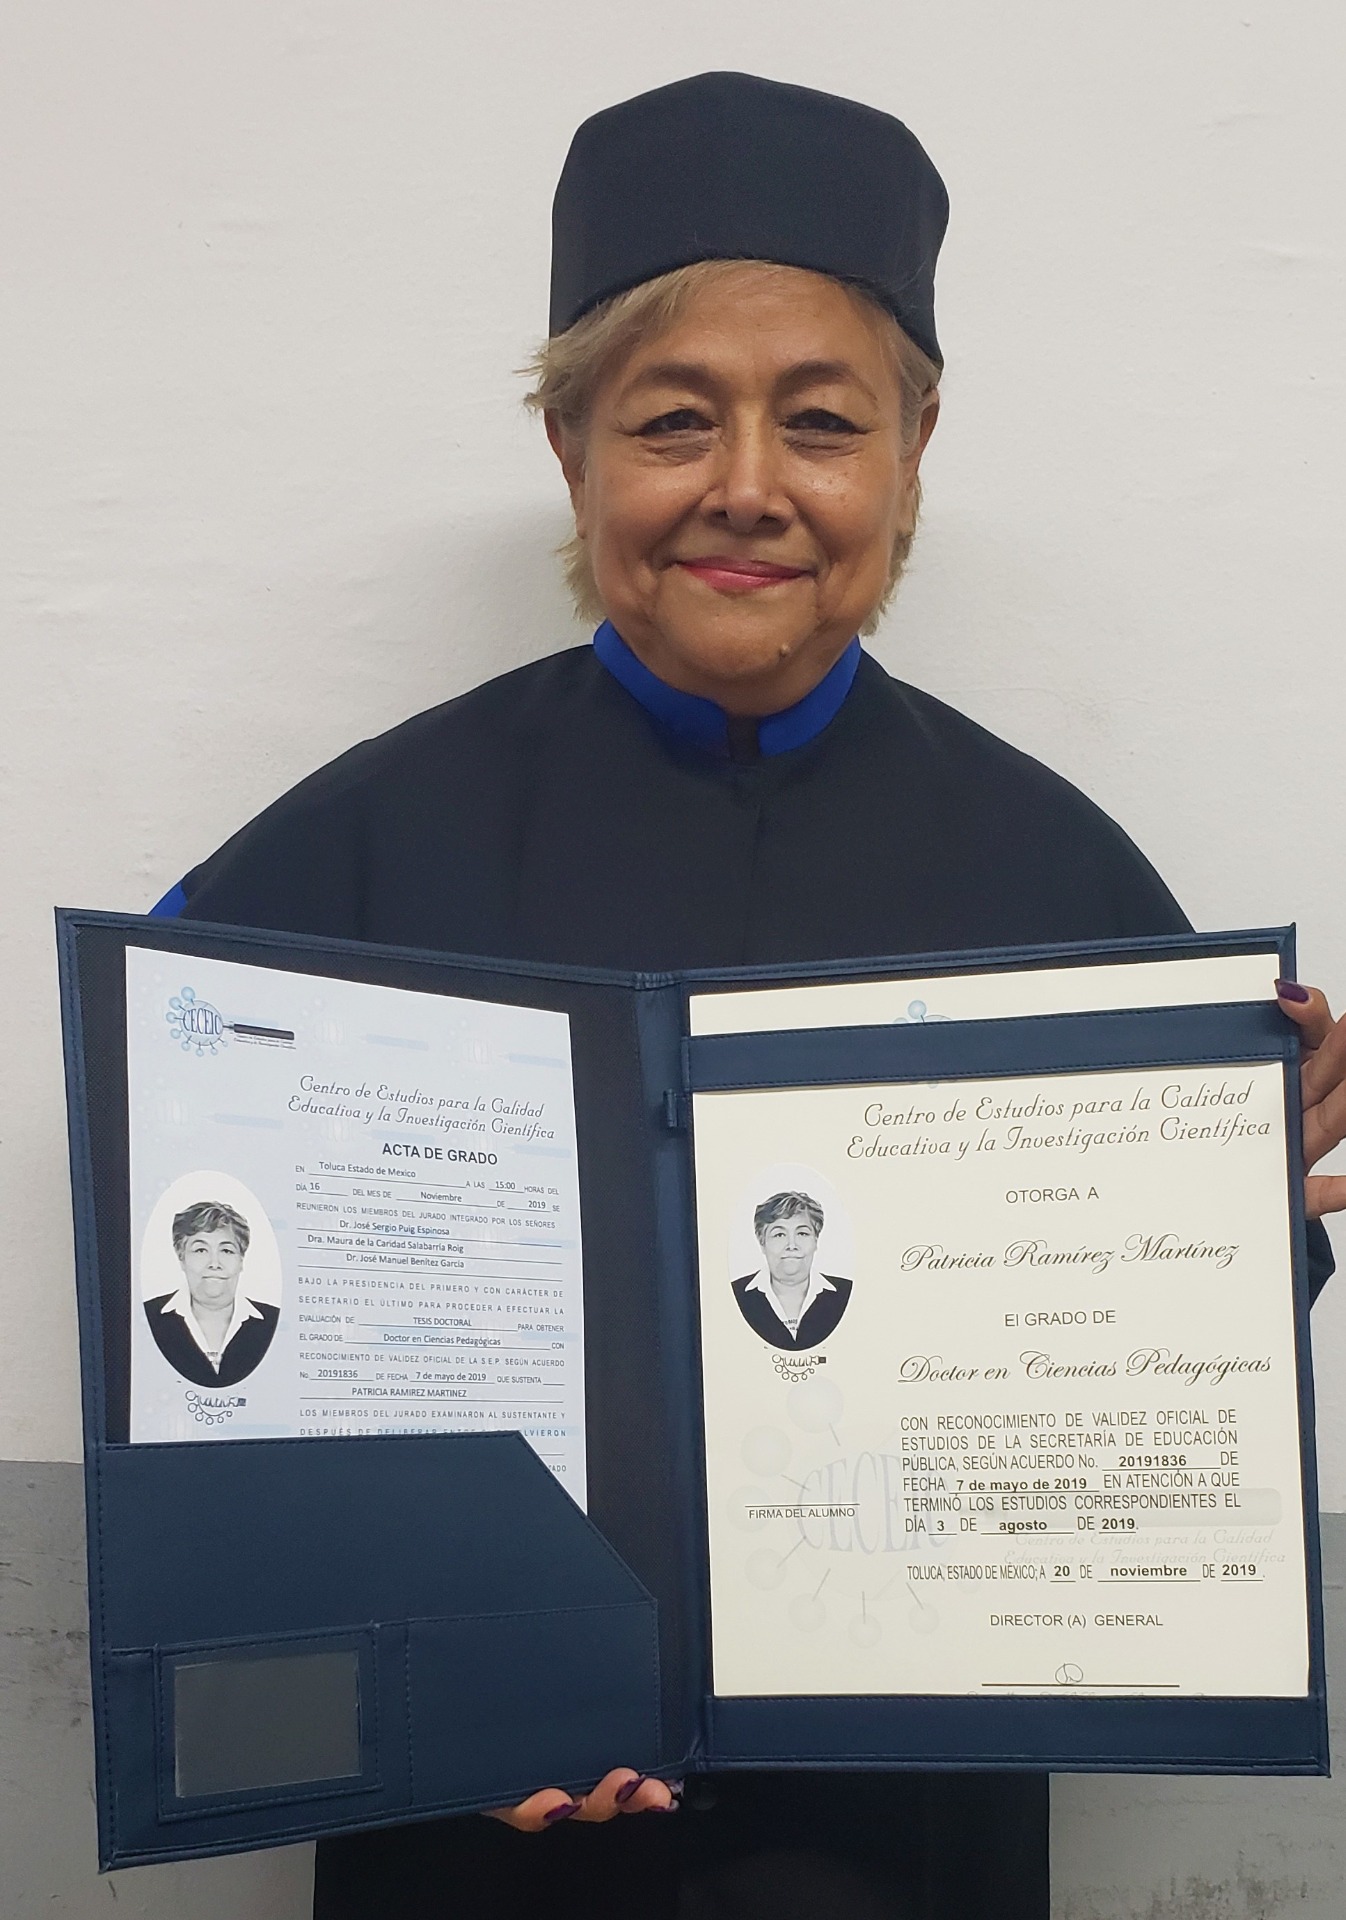 CECEIC
Centro de Estudios para la Calidad
Educativa y la Investigación Científica
ACTA DE GRADO
EN Toluca Estado de Mexico A LAS 15:00 HORAS DEL
DÍA 16 DEL MES DE Noviembre DE 2019 SE
REUNIERON LOS MIEMBROS DEL JURADO INTEGRADO POR LOS SEÑORES
Dr. José Sergio Puig Espinosa
Dra. Maura de la Caridad Salabarría Roig
Dr. José Manuel Benítez García
BAJO LA PRESIDENCIA DEL PRIMERO Y CON CARÁCTER DE
SECRETARIO EL ÚLTIMO PARA PROCEDER A EFECTUAR LA
EVALUACIÓN DE TESIS DOCTORAL PARA OBTENER
EL GRADO DE Doctor en Ciencias Pedagógicas CON
RECONOCIMIENTO DE VALIDEZ OFICIAL DE LA S.E.P. SEGÚN ACUERDO
No. 20191836 DE FECHA 7 de mayo de 2019 QUE SUSTENTA
PATRICIA RAMIREZ MARTINEZ
LOS MIEMBROS DEL JURADO EXAMINARON AL SUSTENTANTE Y
DESPUÉS DE DELIBERAR
Centro de Estudios para la Calidad
Educativa y la Investigación Científica
OTORGA A
Patricia Ramírez Martínez
El GRADO DE
Doctor en Ciencias Pedagógicas
CON RECONOCIMIENTO DE VALIDEZ OFICIAL DE
ESTUDIOS DE LA SECRETARÍA DE EDUCACIÓN
PÚBLICA, SEGÚN ACUERDO No. 20191836 DE
FECHA 7 de mayo de 2019 EN ATENCIÓN A QUE
TERMINÓ LOS ESTUDIOS CORRESPONDIENTES EL
DÍA 3 DE agosto DE 2019.
FIRMA DEL ALUMNO
CECEIC
Centro de Estudios para la Calidad
Educativa y la Investigación Científica
TOLUCA, ESTADO DE MÉXICO; A 20 DE noviembre DE 2019.
DIRECTOR (A) GENERAL